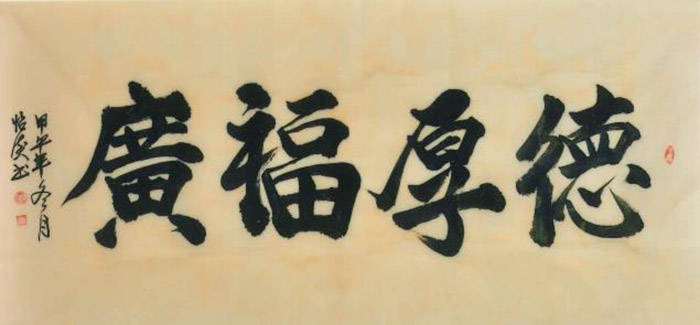 德厚福廣
甲午年冬月